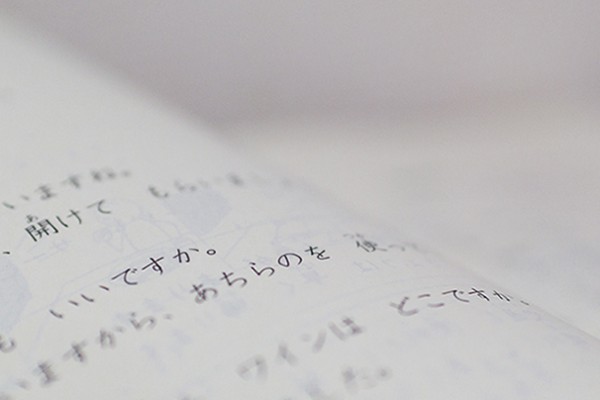 いますね。 もらいま
、開けて
も いいですか。
いますから、あちらのを 使っ
ワインは どこですか。